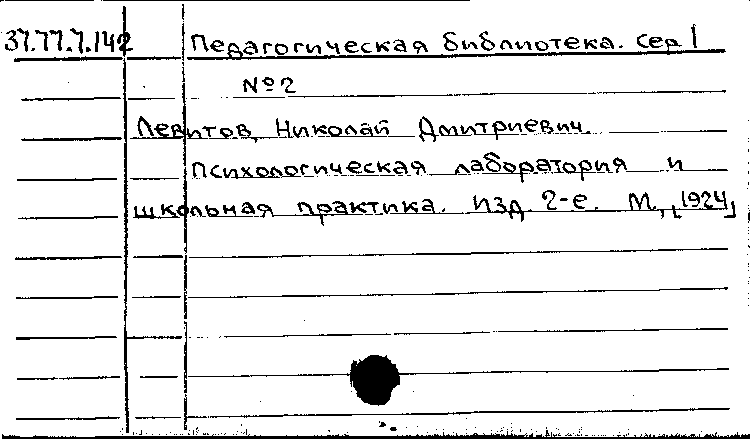 37.77.7.142 Педагогическая библиотека. Сер I
№2
Левитов, Николай Дмитриевич.
Психологическая лаборатория и
школьная практика. Изд. 2-е. М., [1924]